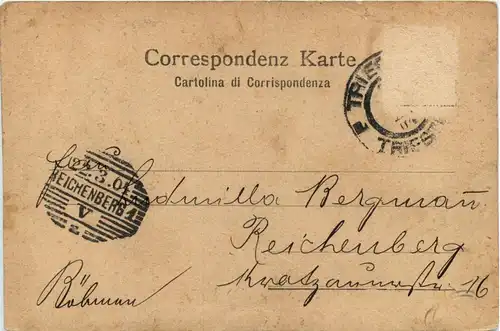 Correspondenz Karte
Cartolina di Corrispondenza
TRIES
TRIEST
22.3.04
REICHENBERG 1
V
Ludmilla Bergman̄
Reichenberg
Kratzauerstr. 16
Böhmen